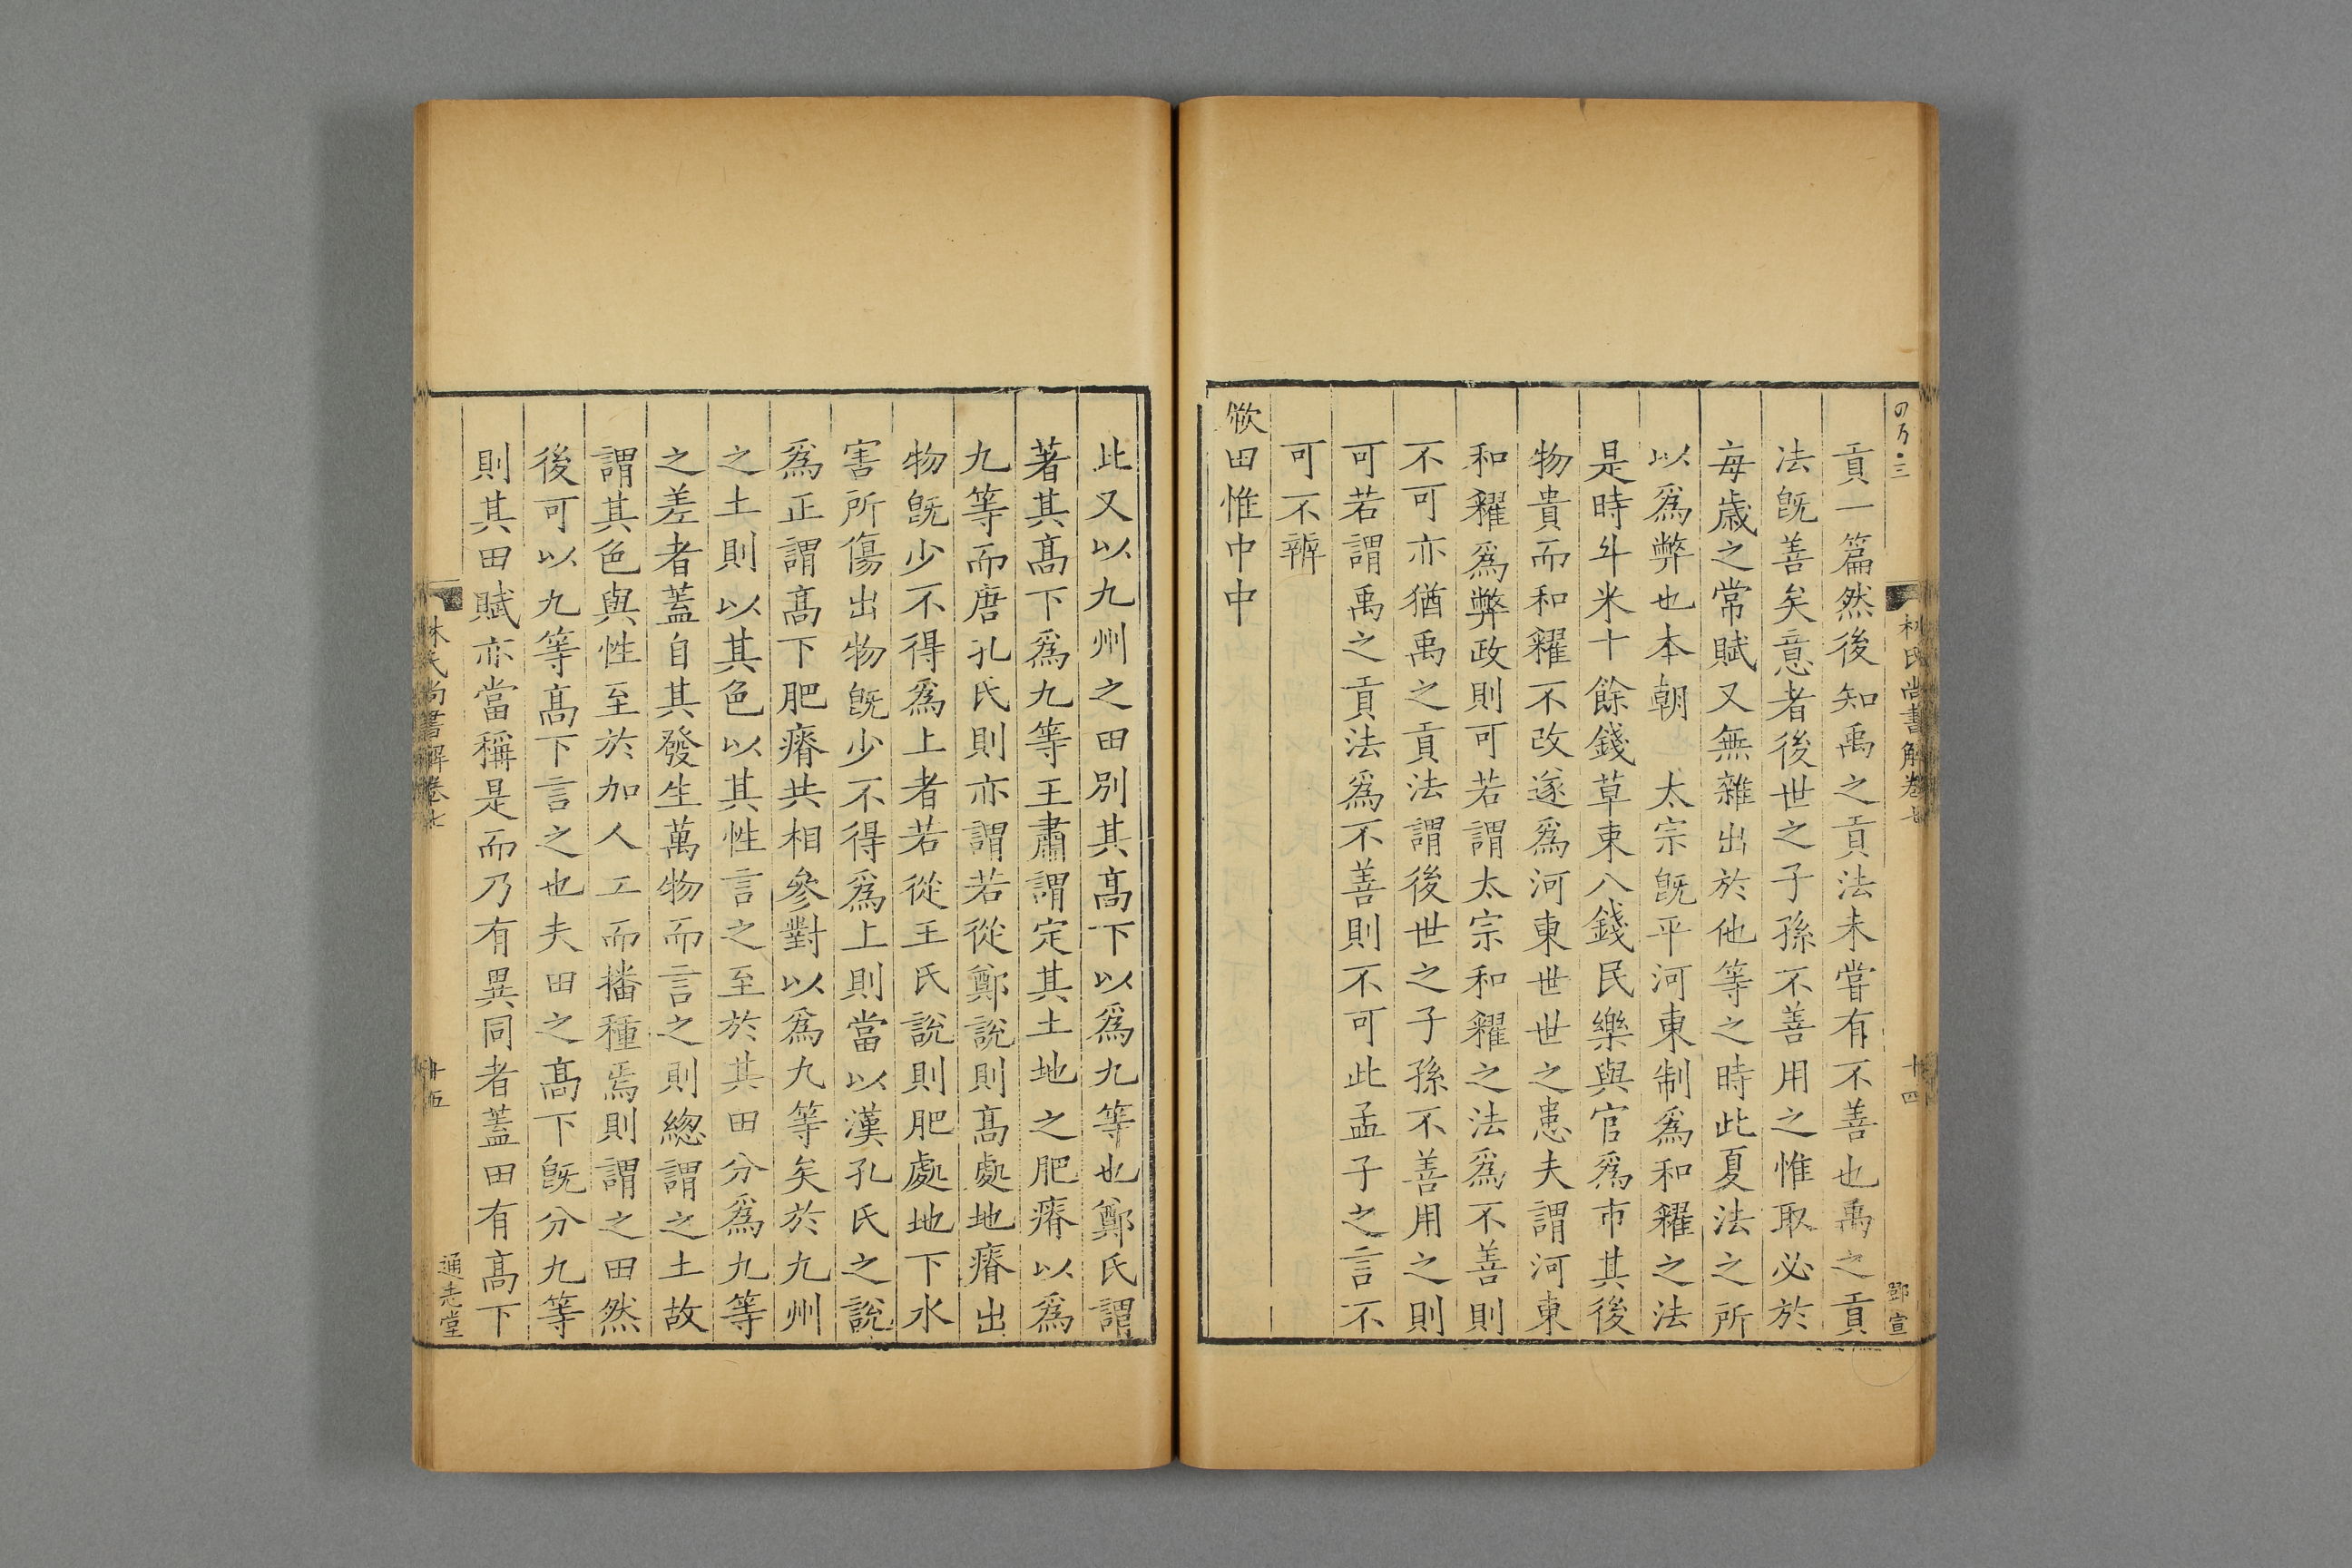 林氏尚書解卷七
十四
鄧宣
貢一篇然後知禹之貢法未嘗有不善也禹之貢
法旣善矣意者後世之子孫不善用之惟取必於
每歲之常賦又無雜出於他等之時此夏法之所
以爲弊也本朝 太宗旣平河東制爲和糴之法
是時斗米十餘錢草束八錢民樂與官爲市其後
物貴而和糴不改遂爲河東世世之患夫謂河東
和糴爲弊政則可若謂太宗和糴之法爲不善則
不可亦猶禹之貢法謂後世之子孫不善用之則
可若謂禹之貢法爲不善則不可此孟子之言不
可不辨
厥田惟中中
此又以九州之田別其髙下以爲九等也鄭氏謂
著其髙下爲九等王肅謂定其土地之肥瘠以爲
九等而唐孔氏則亦謂若從鄭說則髙處地瘠出
物旣少不得爲上者若從王氏說則肥處地下水
害所傷出物旣少不得爲上則當以漢孔氏之說
爲正謂髙下肥瘠共相參對以爲九等矣於九州
之土則以其色以其性言之至於其田分爲九等
之差者蓋自其發生萬物而言之則緫謂之土故
謂其色與性至於加人工而播種焉則謂之田然
後可以九等髙下言之也夫田之髙下旣分九等
則其田賦亦當稱是而乃有異同者蓋田有髙下
林氏尚書解卷七
十五
通志堂